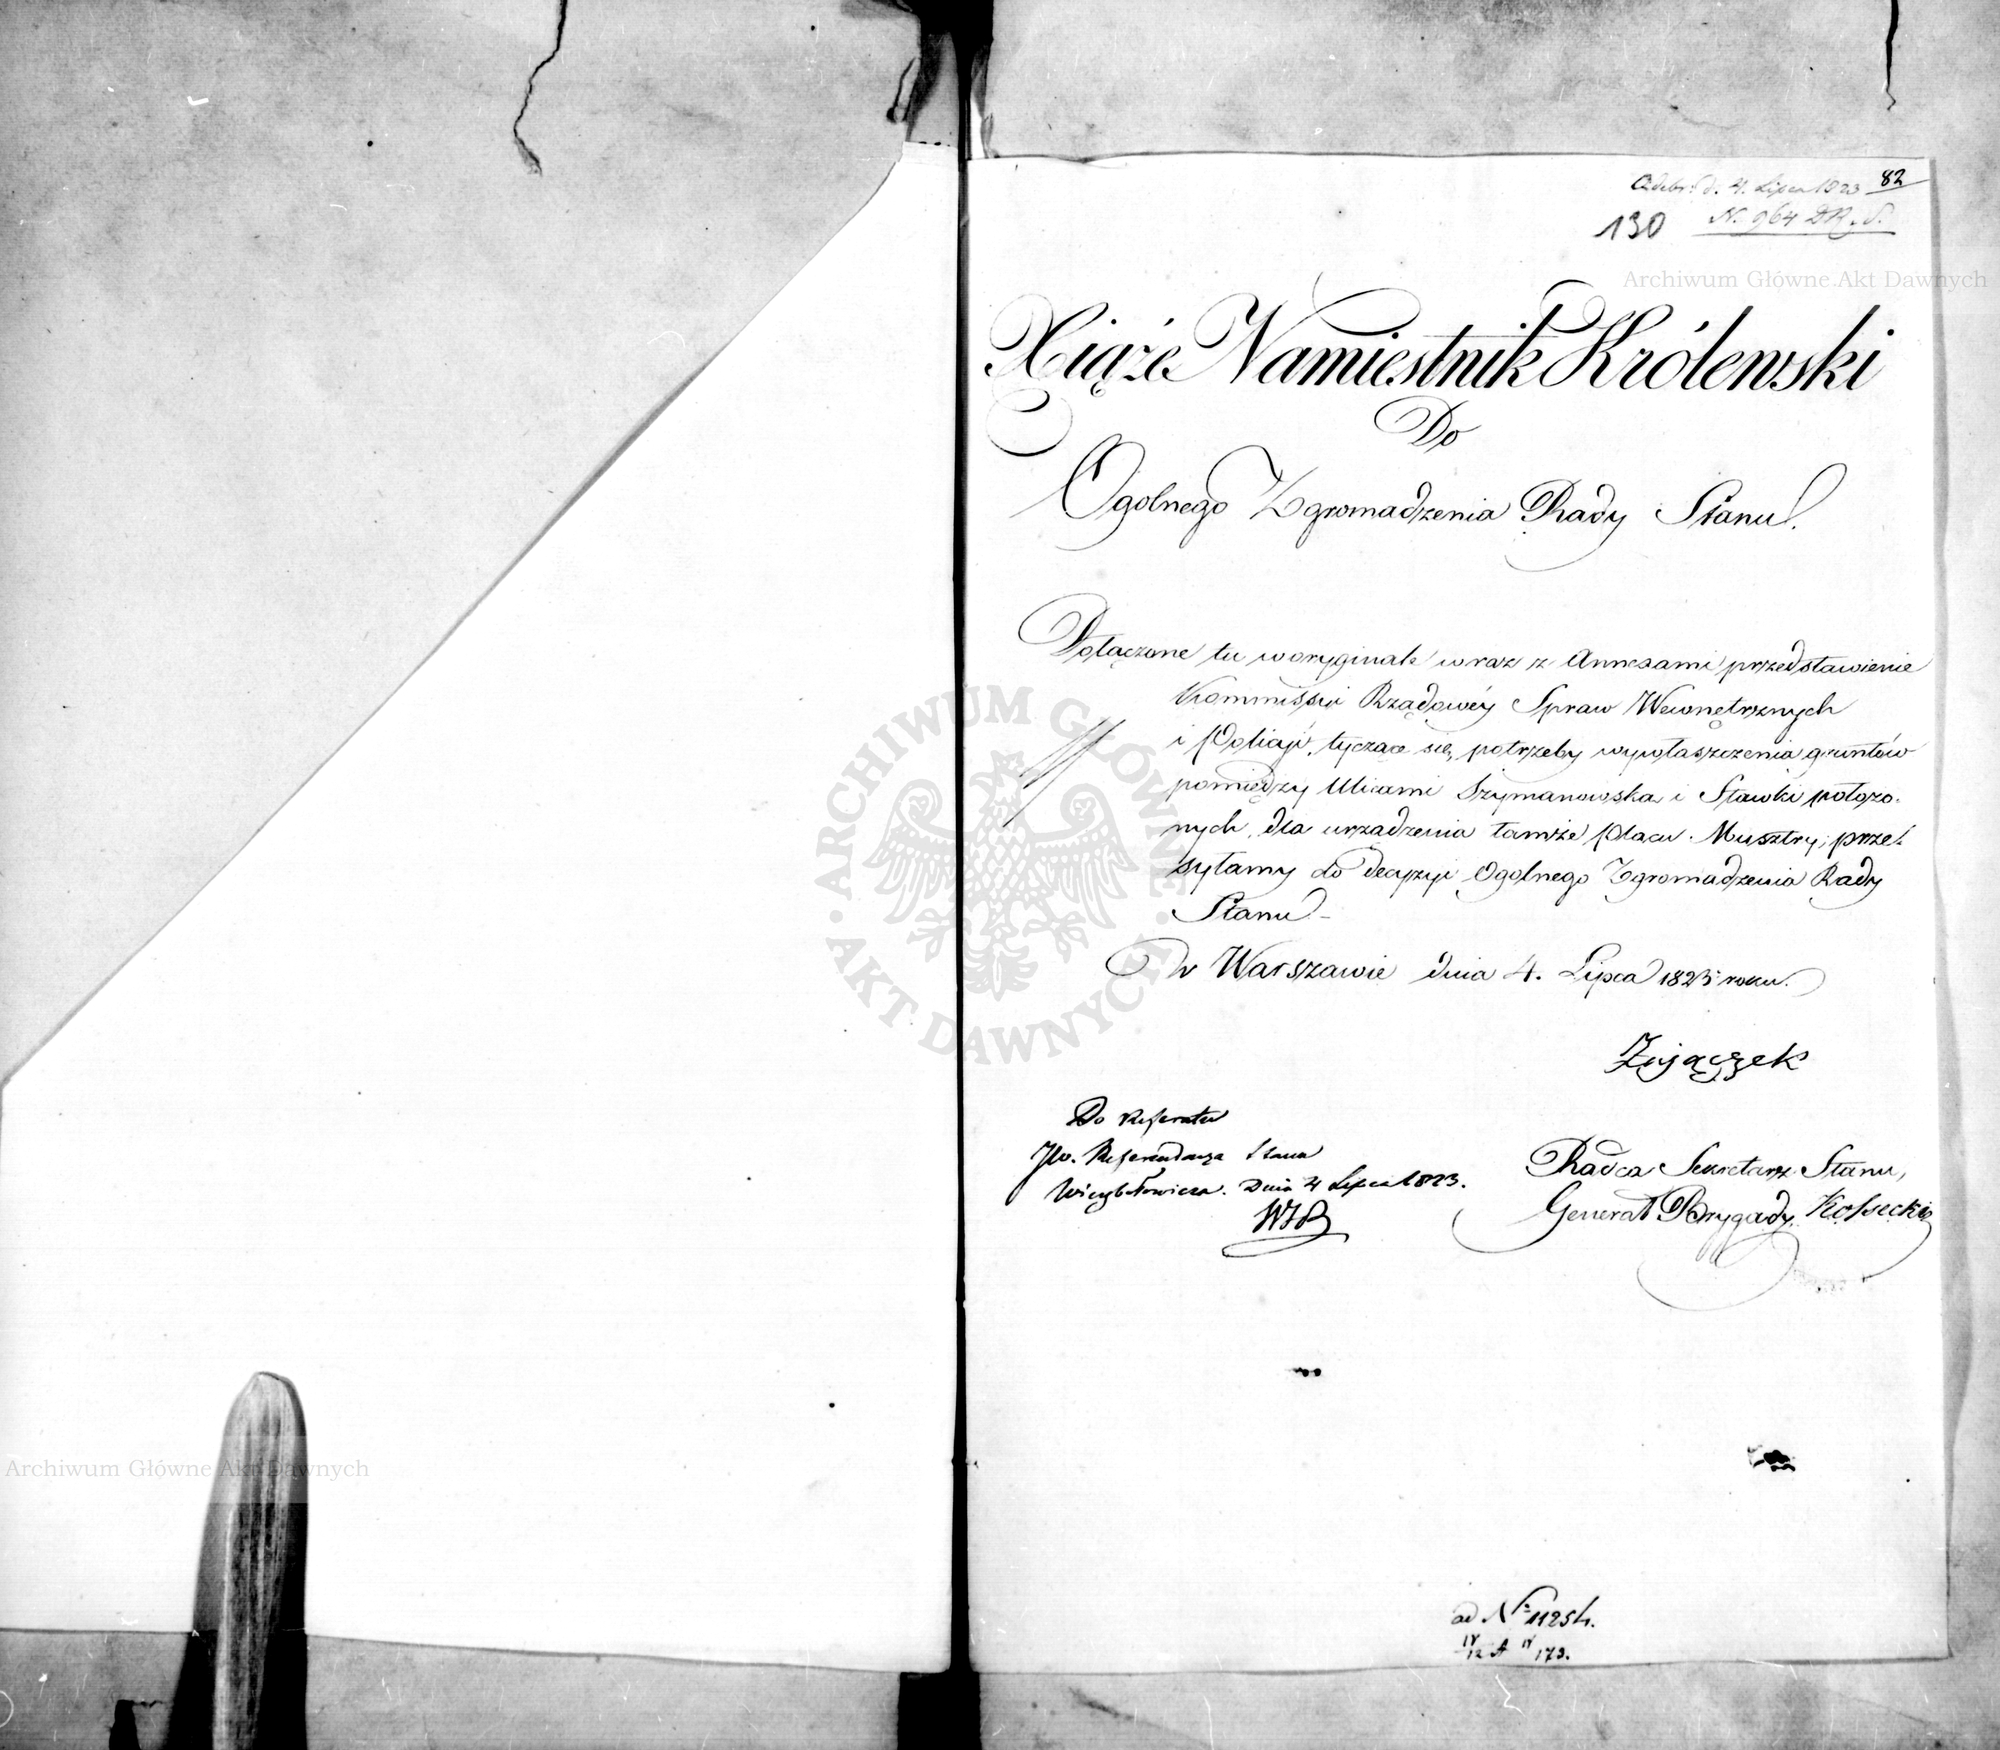 Odebr. d. 4. Lipca 1823 82
130 N. 964 D.R.S.
Archiwum Główne Akt Dawnych
Xiąże Namiestnik Królewski
Do
Ogolnego Zgromadzenia Rady Stanu.
Dołączone tu w oryginale wraz z Annexami przedstawienie
Kommissyi Rządowéy Spraw Wewnętrznych
i Policyi, tyczące się potrzeby wywłaszczenia gruntów
pomiędzy Ulicami Szymanowska i Stawki położo-
nych, dla urządzenia tamże placu Musztry, prze-
syłamy do decyzyi Ogolnego Zgromadzenia Rady
Stanu.
w Warszawie dnia 4. Lipca 1823 roku.
ARCHIWUM GŁÓWNE • AKT DAWNYCH •
Zajączek
Do Referatu
JW. Referendarza Stanu
Dnia 4 Lipca 1823.
Radca Sekretarz Stanu,
Generał Brygady Kossecki
Archiwum Główne Akt Dawnych
ad Nr 11254.